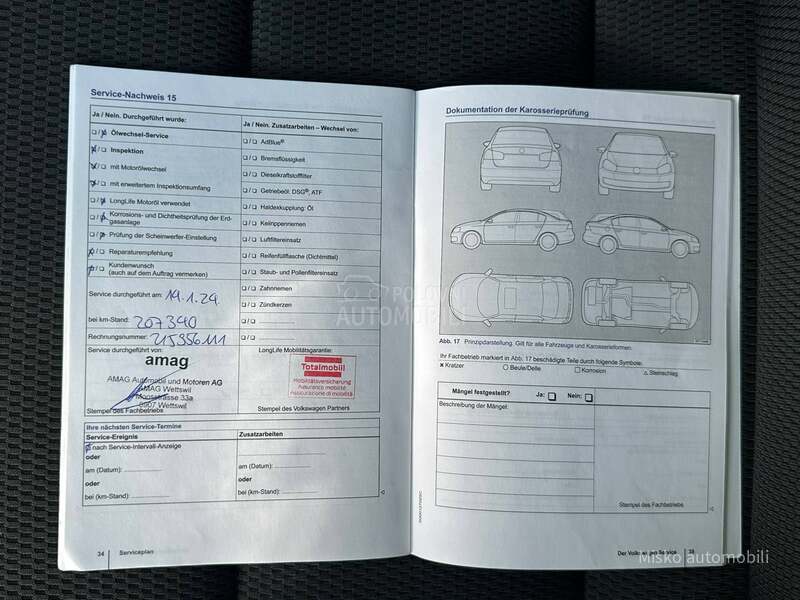 Service-Nachweis 15
Ja / Nein. Durchgeführt wurde:
Ölwechsel-Service
Inspektion
mit Motorölwechsel
mit erweitertem Inspektionsumfang
LongLife Motoröl verwendet
Korrosions- und Dichtheitsprüfung der Erd-
gasanlage
Prüfung der Scheinwerfer-Einstellung
Reparaturempfehlung
Kundenwunsch
(auch auf dem Auftrag vermerken)
Service durchgeführt am: 19.1.24.
bei km-Stand: 207340
Rechnungsnummer:
Service durchgeführt von:
amag
AMAG Automobil und Motoren AG
AMAG Wettswil
Moosstrasse 33a
8907 Wettswil
Stempel des Fachbetriebs
Ja / Nein. Zusatzarbeiten – Wechsel von:
AdBlue®
Bremsflüssigkeit
Dieselkraftstofffilter
Getriebeöl: DSG®, ATF
Haldexkupplung: Öl
Keilrippenriemen
Luftfiltereinsatz
Reifenfüllflasche (Dichtmittel)
Staub- und Pollenfiltereinsatz
Zahnriemen
Zündkerzen
LongLife Mobilitätsgarantie:
Totalmobil
Mobilitätsversicherung
Assurance mobilité
Assicurazione di mobilità
Stempel des Volkswagen Partners
Ihre nächsten Service-Termine
Service-Ereignis
nach Service-Intervall-Anzeige
oder
am (Datum):
oder
bei (km-Stand):
Zusatzarbeiten
am (Datum):
oder
bei (km-Stand):
34 Serviceplan
Dokumentation der Karosserieprüfung
Abb. 17 Prinzipdarstellung. Gilt für alle Fahrzeuge und Karosserieformen.
Ihr Fachbetrieb markiert in Abb. 17 beschädigte Teile durch folgende Symbole:
× Kratzer ○ Beule/Delle □ Korrosion △ Steinschlag
Mängel festgestellt? Ja: Nein:
Beschreibung der Mängel:
Stempel des Fachbetriebs
Der Volkswagen Service
POLOVNI
AUTOMOBILI
Misko automobili